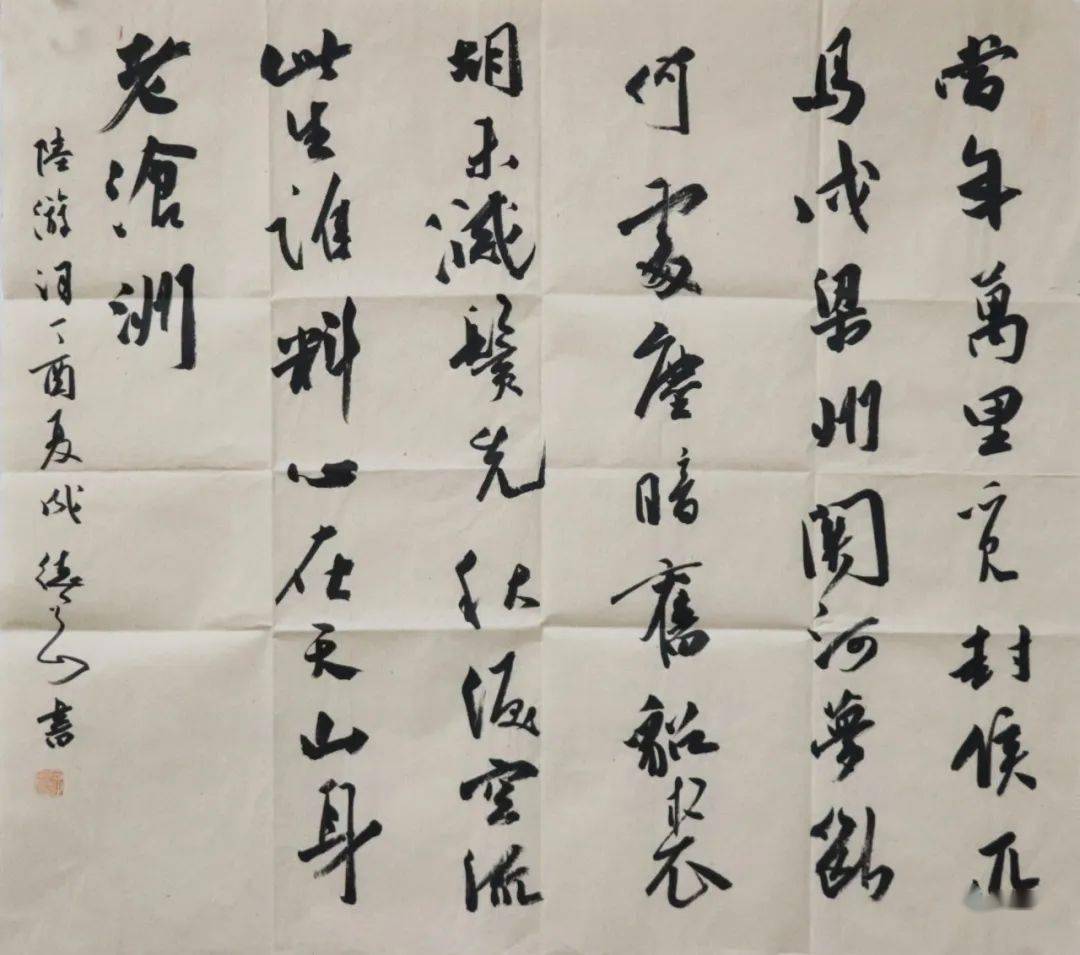 當年萬里覓封侯匹
馬戍梁州關河夢斷
何處塵暗舊貂裘
胡未滅鬢先秋淚空流
此生誰料心在天山身
老滄洲
陸游詞丁酉夏山書